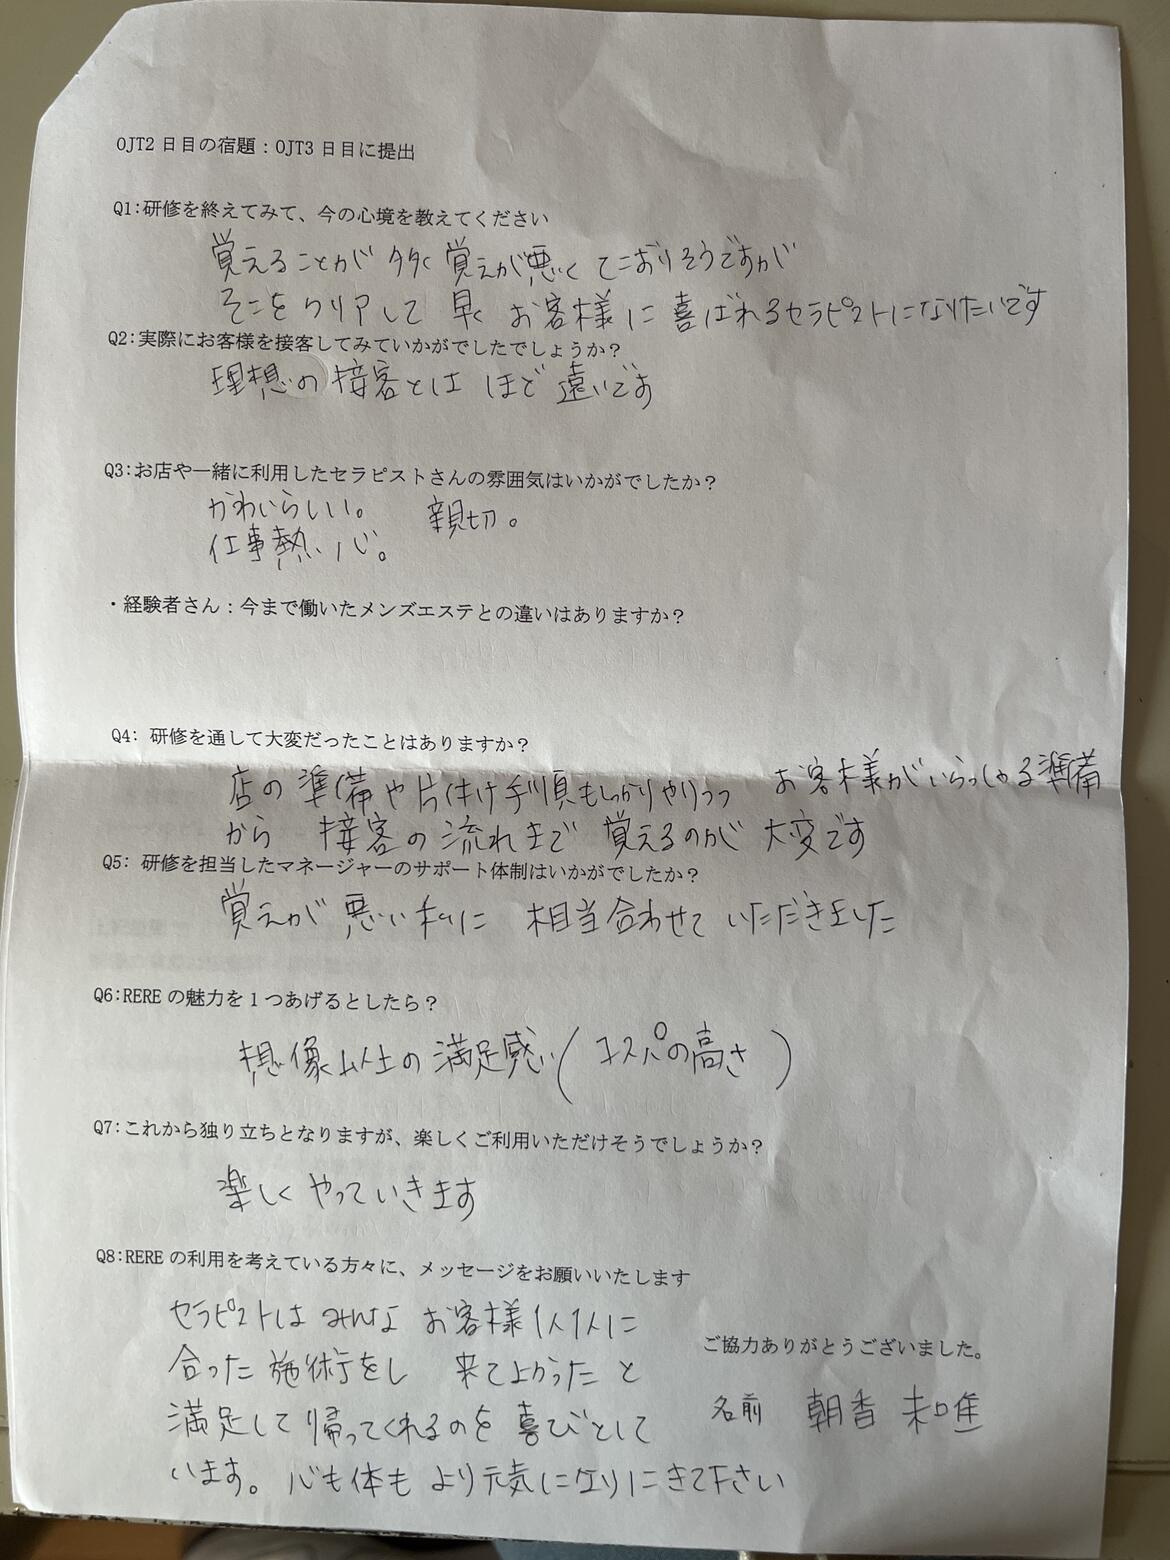 OJT2日目の宿題：OJT3日目に提出
Q1:研修を終えてみて、今の心境を教えてください
覚えることが多く覚えが悪くてこおりそうですが
そこをクリアして早くお客様に喜ばれるセラピストになりたいです
Q2:実際にお客様を接客してみていかがでしたでしょうか？
理想の接客とはほど遠いです
Q3:お店や一緒に利用したセラピストさんの雰囲気はいかがでしたか？
かわいらしい。　親切。
仕事熱心。
・経験者さん：今まで働いたメンズエステとの違いはありますか？
Q4: 研修を通して大変だったことはありますか？
店の準備や片付け手順もしっかりやりつつ　お客様がいらっしゃる準備
から　接客の流れまで覚えるのが大変です
Q5: 研修を担当したマネージャーのサポート体制はいかがでしたか？
覚えが悪い私に　相当合わせていただきました
Q6:REREの魅力を1つあげるとしたら？
想像以上の満足感（コスパの高さ）
Q7:これから独り立ちとなりますが、楽しくご利用いただけそうでしょうか？
楽しくやっていきます
Q8:REREの利用を考えている方々に、メッセージをお願いいたします
セラピストはみんなお客様1人1人に
合った施術をし　来てよかったと
満足して帰ってくれるのを喜びとして
います。心も体もより元気になりにきて下さい
ご協力ありがとうございました。
名前　朝香